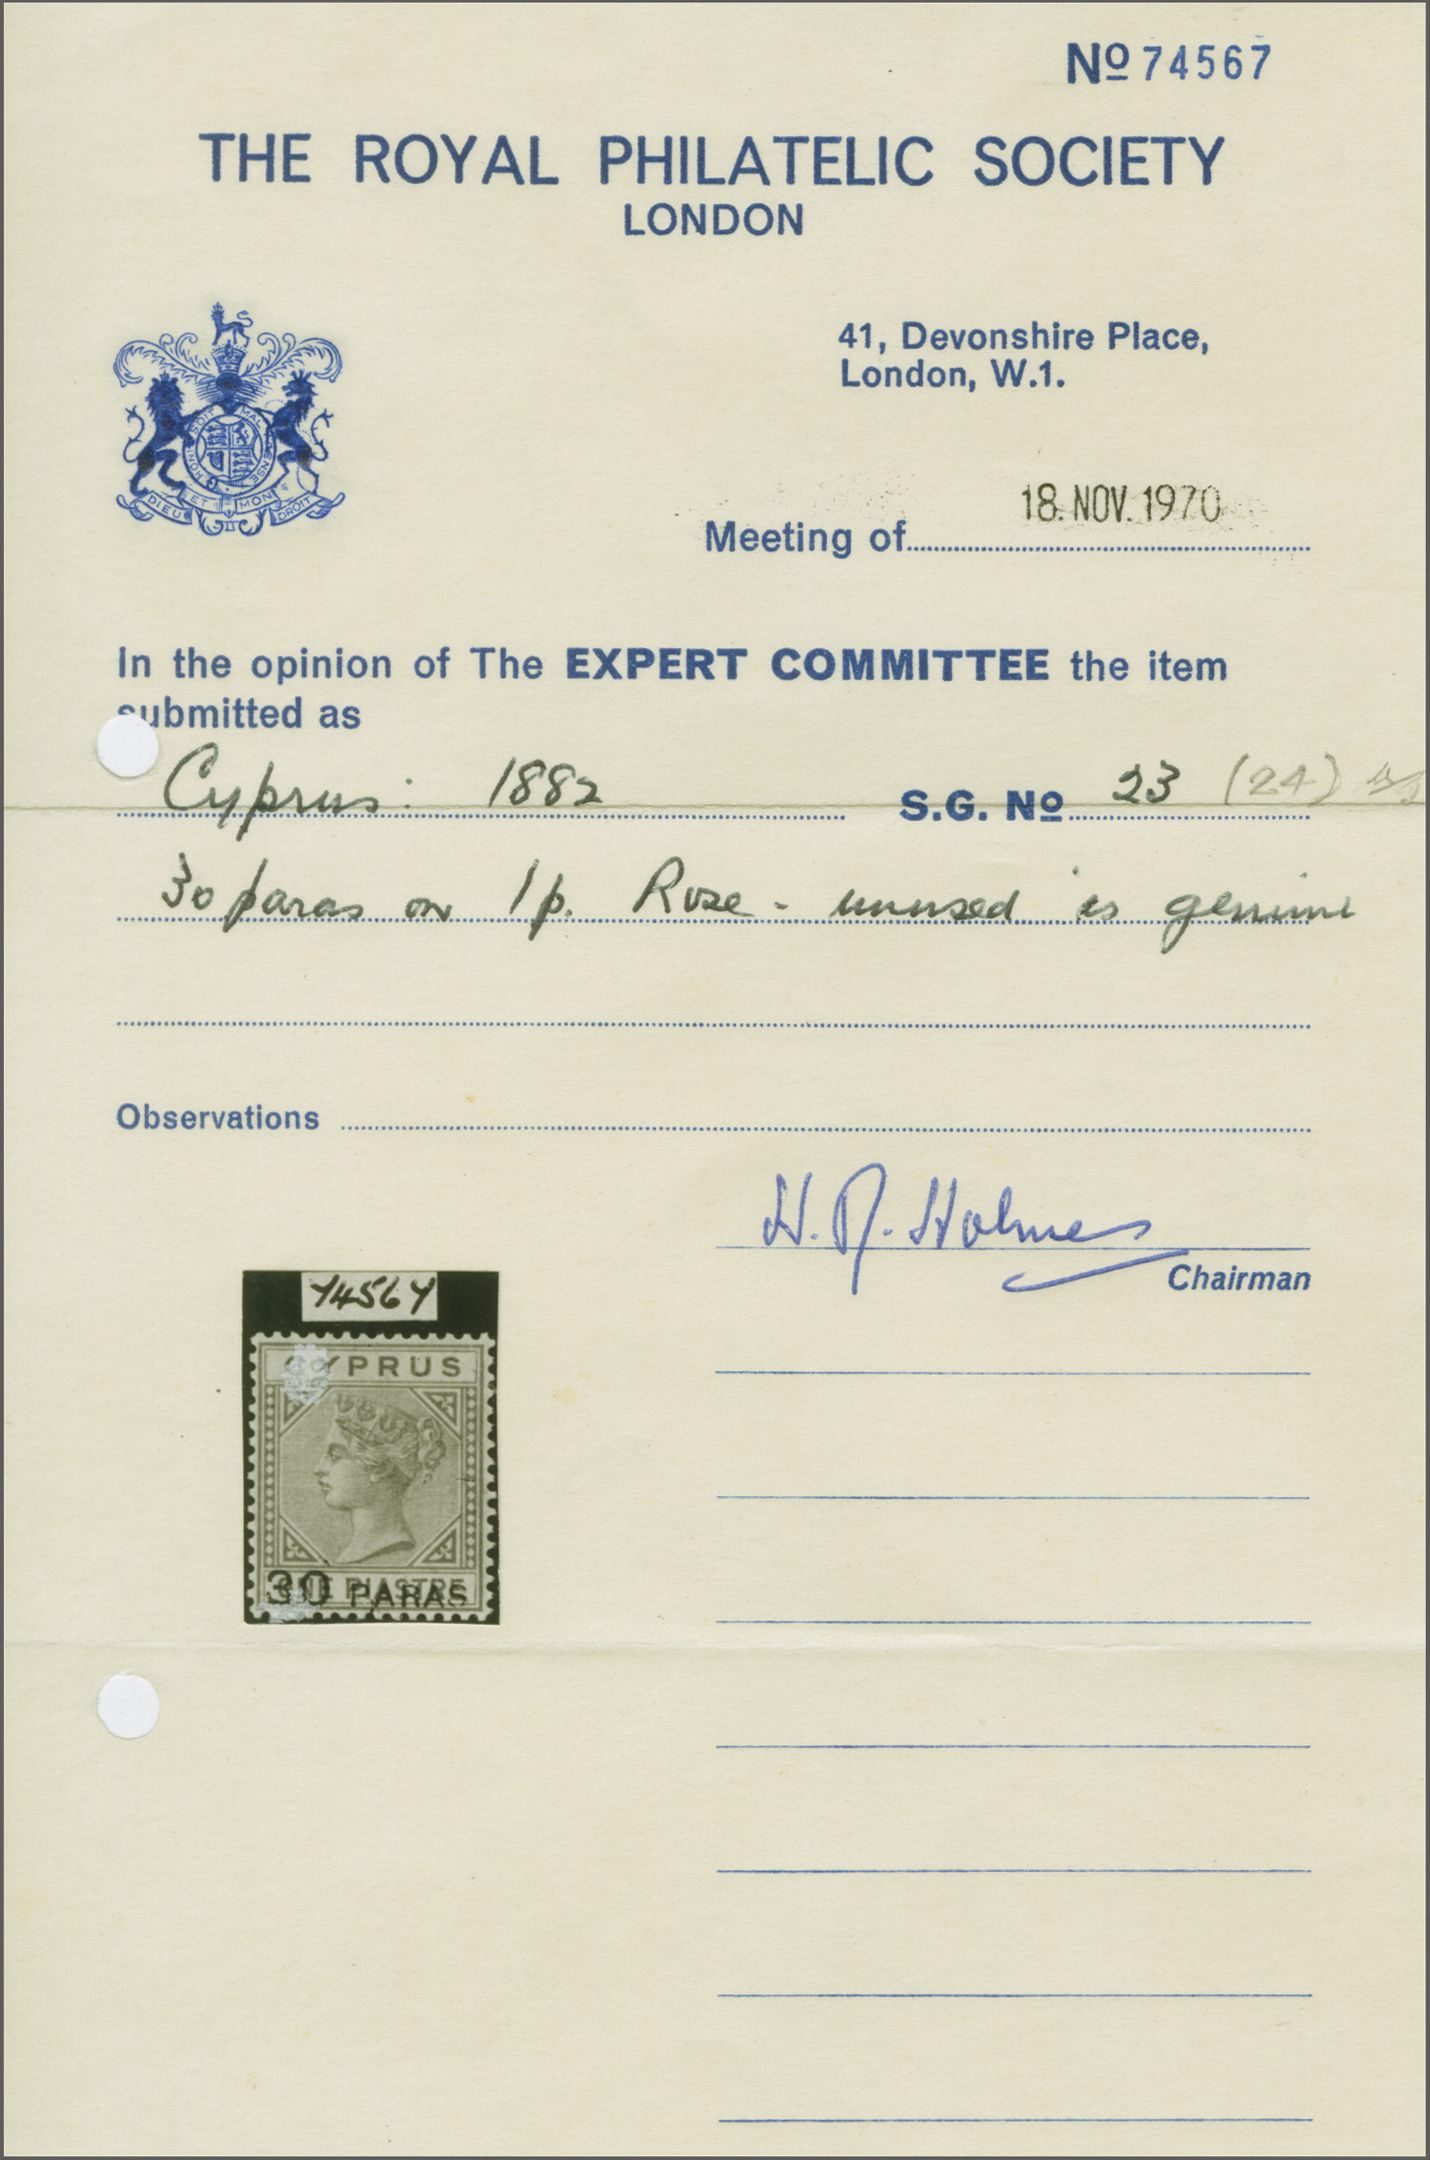 No 74567
THE ROYAL PHILATELIC SOCIETY
LONDON
41, Devonshire Place,
London, W.1.
HONI SOIT MAL PENSE
DIEU ET MON DROIT
18. NOV. 1970
Meeting of
In the opinion of The EXPERT COMMITTEE the item
submitted as
Cyprus: 1882 S.G. No 23 (24)
30 paras on 1p. Rose - unused is genuine
Observations
H. R. Holmes
Chairman
74567
CYPRUS
ONE PIASTRE
30 PARAS